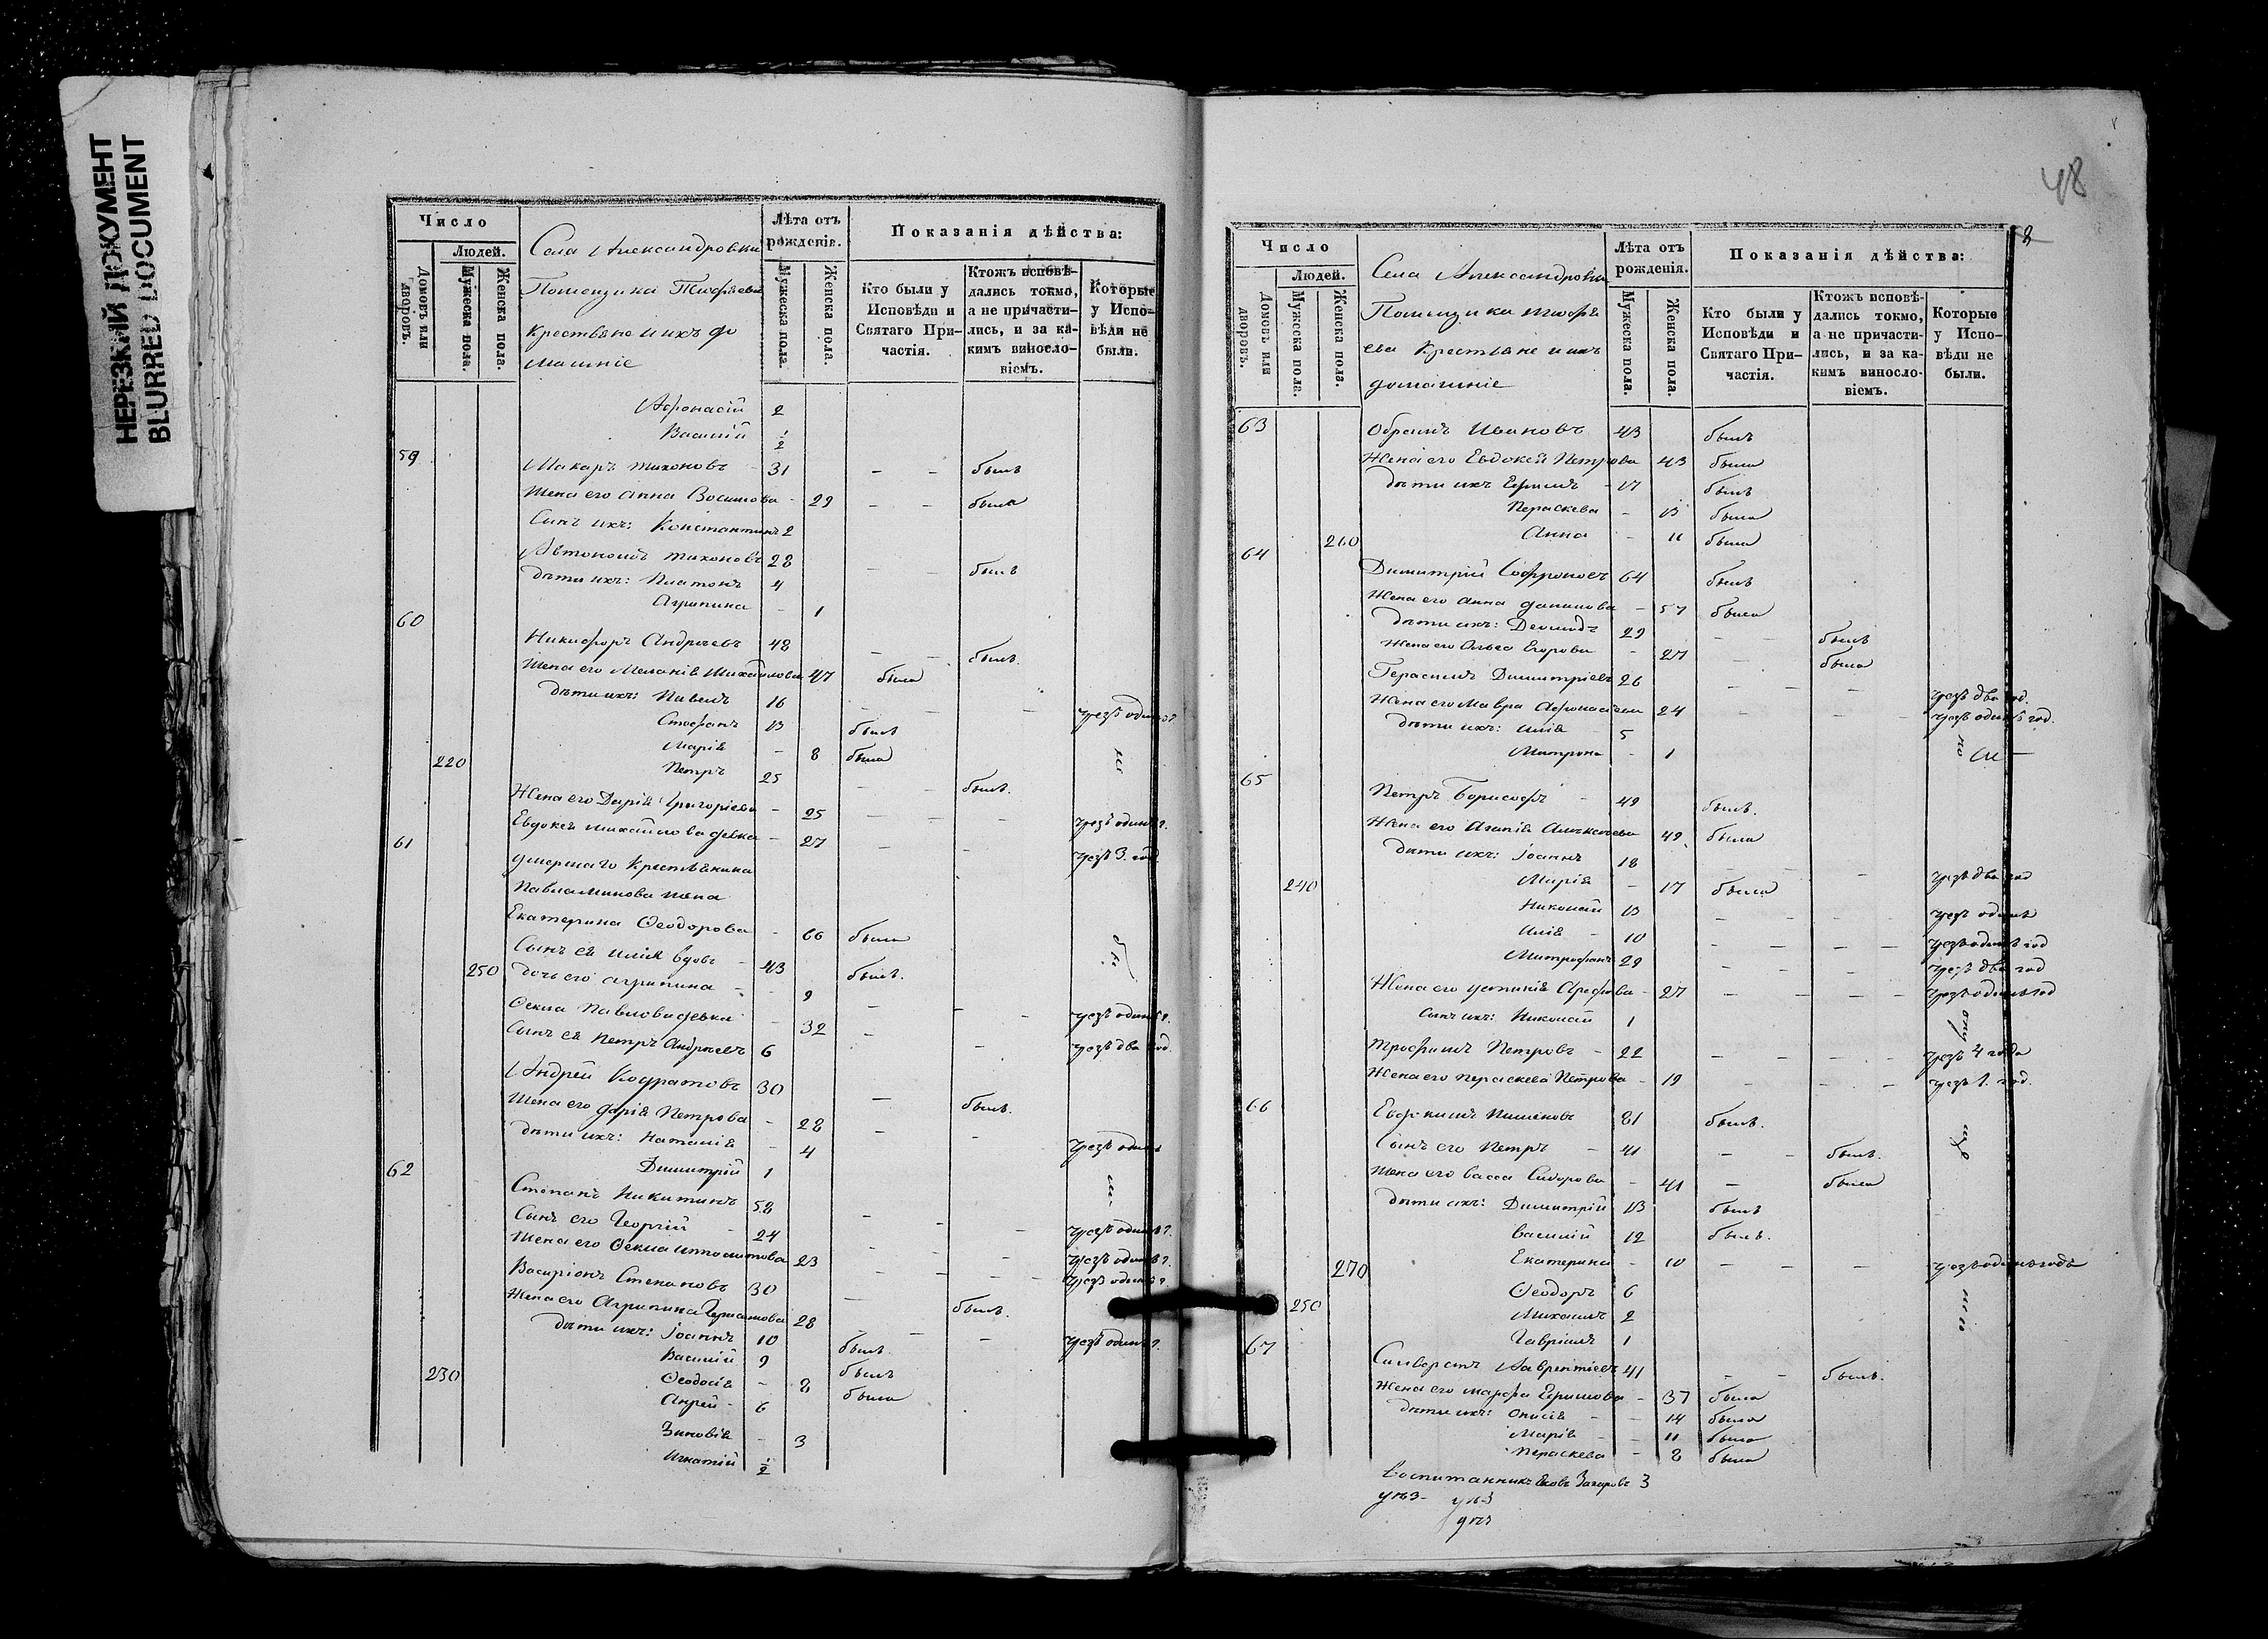 НЕРЕЗКИЙ ДОКУМЕНТ
BLURRED DOCUMENT
Число
Людей.
Домовъ или дворовъ.
Мужеска пола.
Женска пола.
Села Александровки
Помещика
Крестьяне и ихъ до
машніе
Лѣта отъ рожденія.
Мужеска пола.
Женска пола.
Показанія дѣйства:
Кто были у Исповѣди и Святаго При-частія.
Ктожъ исповѣ-дались токмо, а не причасти-лись, и за ка-кимъ виносло-віемъ.
Которые у Испо-вѣди не были.
Афонасій 2
Василій ½
59 Макаръ Тихоновъ 31 - - былъ
Жена его Анна - 29 - - была
Сынъ ихъ: Константинъ 2
Автономъ Тихоновъ 28 - - былъ
Дѣти ихъ: Платонъ 4
Агрипина - 1
60 Никифоръ Андреевъ 48 - - былъ.
Жена его Меланія Михайлова 47 была
Дѣти ихъ: Павелъ 16 - - - чрезъ одинъ г.
Стефанъ 13 былъ
Марія - 8 была
220 Петръ 25 - - былъ.
Жена его Дарія Григоріева - 25 - - - чрезъ одинъ г.
Евдокея Михайлова девка - 27 - - чрезъ 3. год.
61 умершаго Крестьянина
Павла жена
Екатерина Ѳеодорова - 66 была
Сынъ ея Илія вдовъ - 43 былъ.
250 Дочь его Агрипина - - 9 - - - чрезъ одинъ г.
Ѳекла Павлова девка - 32 - - чрезъ два год.
Сынъ ея Петръ Андреевъ 6
Андрей 30 - былъ.
Жена его Дарія Петрова - 28 - - - чрезъ одинъ
Дѣти ихъ: Наталія - 4
Димитрій 1
62 Степанъ Никитинъ 58 - - - чрезъ одинъ г.
Сынъ его Георгій - 24 - - - чрезъ одинъ г.
Жена его Ѳекла Ипполитова 23 - - - чрезъ одинъ г.
Степановъ 30 - былъ.
Жена его Агрипина 28 - - - чрезъ одинъ г.
Дѣти ихъ: Іоаннъ 10 былъ.
Василій 9 былъ
230 Ѳеодосія - 8 была
Андрей - 6
Зиновія - 3
Игнатій ½
48
Число
Людей.
Домовъ или дворовъ.
Мужеска пола.
Женска пола.
Села Александровки
Помещика
Крестьяне и ихъ
домашніе
Лѣта отъ рожденія.
Мужеска пола.
Женска пола.
Показанія дѣйства:
Кто были у Исповѣди и Святаго При-частія.
Ктожъ исповѣ-дались токмо, а не причасти-лись, и за ка-кимъ виносло-віемъ.
Которые у Испо-вѣди не были.
63 Ивановъ 43 былъ
Жена его Евдокея Петрова 43 была
Дѣти ихъ Ефимъ - 17 былъ
Пераскева - 13 была
260 Анна - 11 была
64 Димитрій Софроновъ 64 былъ
Жена его Анна Данилова - 57 была
Дѣти ихъ: Демидъ 29 - - былъ
Жена его Ольга Егорова - 27 - была
Герасимъ Димитріевъ 26 - - - чрезъ два год.
Жена его Мавра Афонасіева 24 - - - чрезъ одинъ год.
Дѣти ихъ: Илія - 5
Матрона - 1
65 Петръ Борисофъ - 49 былъ.
Жена его Агапія Алексеева 49. была
Дѣти ихъ: Іоаннъ 18 - - - чрезъ два год
240 Марія - 17 была
Николай 13 - - - чрезъ одинъ
Илія - 10 - - - - чрезъ одинъ год
Митрофанъ 29 - - - чрезъ два год
Жена его Устинія Арефева - 27 - - - - чрезъ одинъ год
Сынъ ихъ: Николай 1
Трофимъ Петровъ - 22 - - - - чрезъ 4 года
Жена его Пераскева Петрова - 19 - - - чрезъ 1. год.
66 Евдокимъ Пименовъ 81 былъ.
Сынъ его Петръ - 41 - - былъ.
Жена его Васса Сидорова - 41 - была
Дѣти ихъ: Димитрій 13 былъ
Василій 12 былъ.
270 Екатерина - 10 - - - чрезъ одинъ годъ
Ѳеодоръ 6
250 Михаилъ 2
Гавріилъ 1
67 Лаврентіевъ 41 - - былъ.
Жена его Марфа Ефимова - 37 была
Дѣти ихъ: Онисія - - 14 была
Марія - - 11 была
Пераскева - 8 была
Воспитанникъ Яковъ Захаровъ 3